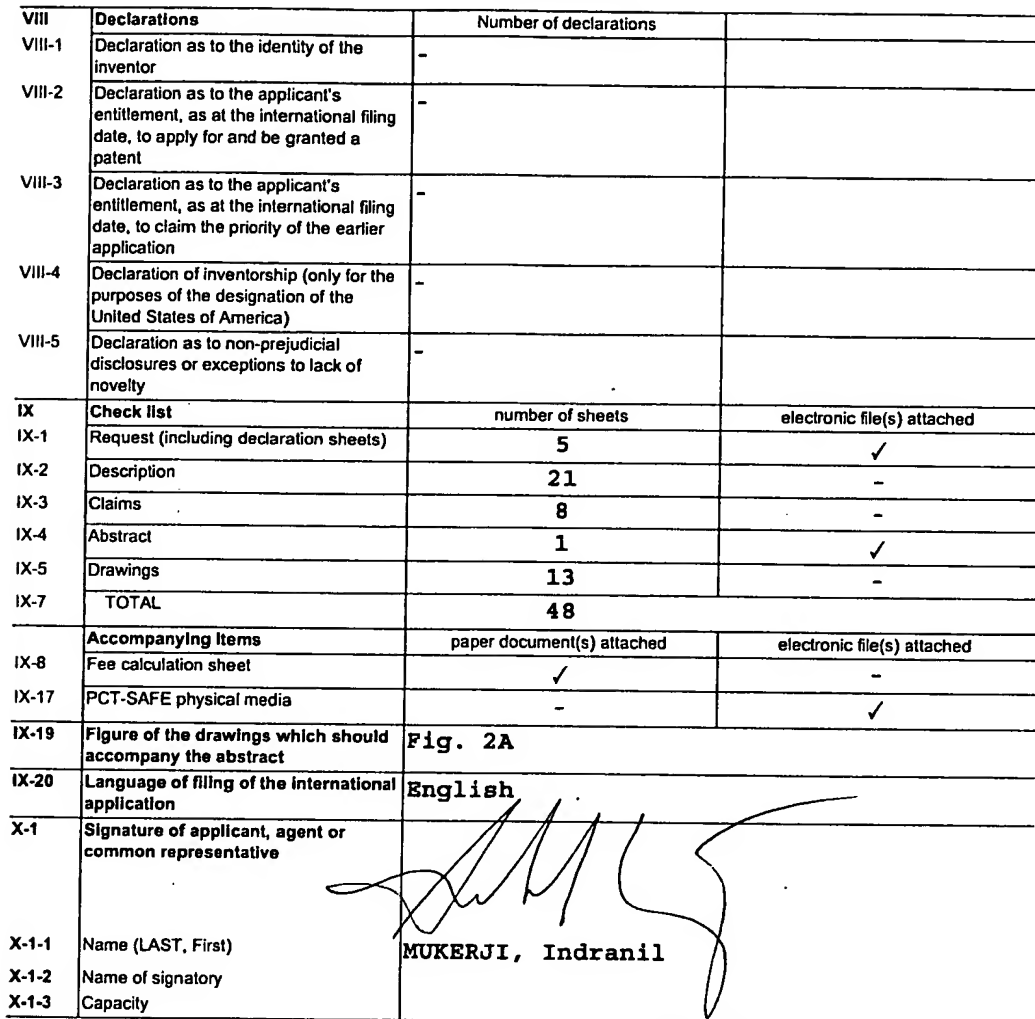 VIII Declarations Number of declarations
VIII-1 Declaration as to the identity of the
inventor -
VIII-2 Declaration as to the applicant's
entitlement, as at the international filing
date, to apply for and be granted a
patent -
VIII-3 Declaration as to the applicant's
entitlement, as at the international filing
date, to claim the priority of the earlier
application -
VIII-4 Declaration of inventorship (only for the
purposes of the designation of the
United States of America) -
VIII-5 Declaration as to non-prejudicial
disclosures or exceptions to lack of
novelty -
IX Check list number of sheets electronic file(s) attached
IX-1 Request (including declaration sheets) 5 ✓
IX-2 Description 21 -
IX-3 Claims 8 -
IX-4 Abstract 1 ✓
IX-5 Drawings 13 -
IX-7 TOTAL 48
Accompanying Items paper document(s) attached electronic file(s) attached
IX-8 Fee calculation sheet ✓ -
IX-17 PCT-SAFE physical media - ✓
IX-19 Figure of the drawings which should Fig. 2A
accompany the abstract
IX-20 Language of filing of the international English
application
X-1 Signature of applicant, agent or
common representative
X-1-1 Name (LAST, First) MUKERJI, Indranil
X-1-2 Name of signatory
X-1-3 Capacity